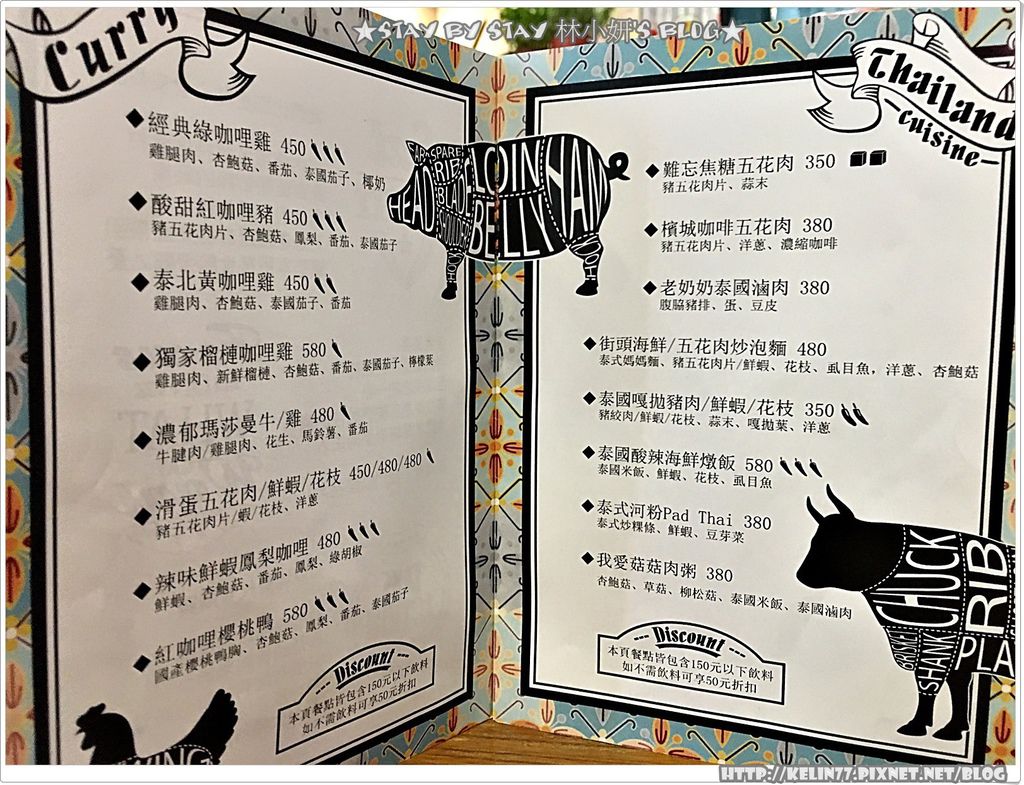 ★STAY BY STAY 林小妍'S BLOG★
Curry
◆經典綠咖哩雞 450
雞腿肉、杏鮑菇、番茄、泰國茄子、椰奶
◆酸甜紅咖哩豬 450
豬五花肉片、杏鮑菇、鳳梨、番茄、泰國茄子
◆泰北黃咖哩雞 450
雞腿肉、杏鮑菇、泰國茄子、番茄
◆獨家榴槤咖哩雞 580
雞腿肉、新鮮榴槤、杏鮑菇、番茄、泰國茄子、檸檬葉
◆濃郁瑪莎曼牛/雞 480
牛腱肉/雞腿肉、花生、馬鈴薯、番茄
◆滑蛋五花肉/鮮蝦/花枝 450/480/480
豬五花肉片/蝦/花枝、洋蔥
◆辣味鮮蝦鳳梨咖哩 480
鮮蝦、杏鮑菇、番茄、鳳梨、綠胡椒
◆紅咖哩櫻桃鴨 580
國產櫻桃鴨胸、杏鮑菇、鳳梨、番茄、泰國茄子
Discount
本頁餐點皆包含150元以下飲料
如不需飲料可享50元折扣
WING
HEAD
SPARE
RIB
BLADE
LOIN
BELLY
HAM
HOCK
HO
Thailand
-cuisine-
◆難忘焦糖五花肉 350
豬五花肉片、蒜末
◆檳城咖啡五花肉 380
豬五花肉片、洋蔥、濃縮咖啡
◆老奶奶泰國滷肉 380
腹脇豬排、蛋、豆皮
◆街頭海鮮/五花肉炒泡麵 480
泰式媽媽麵、豬五花肉片/鮮蝦、花枝、虱目魚，洋蔥、杏鮑菇
◆泰國嘎拋豬肉/鮮蝦/花枝 350
豬絞肉/鮮蝦/花枝、蒜末、嘎拋葉、洋蔥
◆泰國酸辣海鮮燉飯 580
泰國米飯、鮮蝦、花枝、虱目魚
◆泰式河粉Pad Thai 380
泰式炒粿條、鮮蝦、豆芽菜
◆我愛菇菇肉粥 380
杏鮑菇、草菇、柳松菇、泰國米飯、泰國滷肉
Discount
本頁餐點皆包含150元以下飲料
如不需飲料可享50元折扣
CHUCK
RIB
BRISKET
SHANK
PLA
HTTP://KELIN77.PIXNET.NET/BLOG